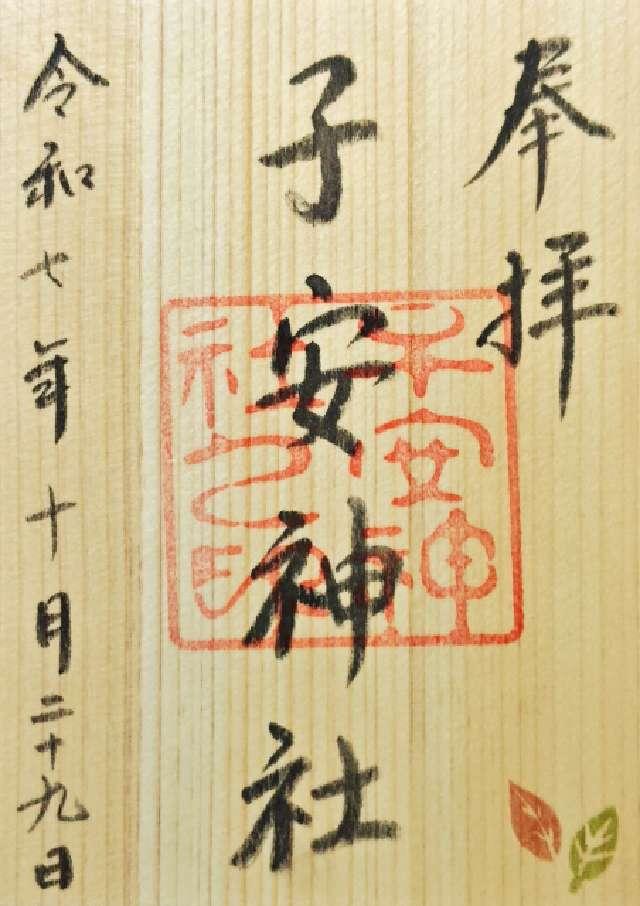 奉拝
子安神社
子安神
社之印
令和七年十月二十九日